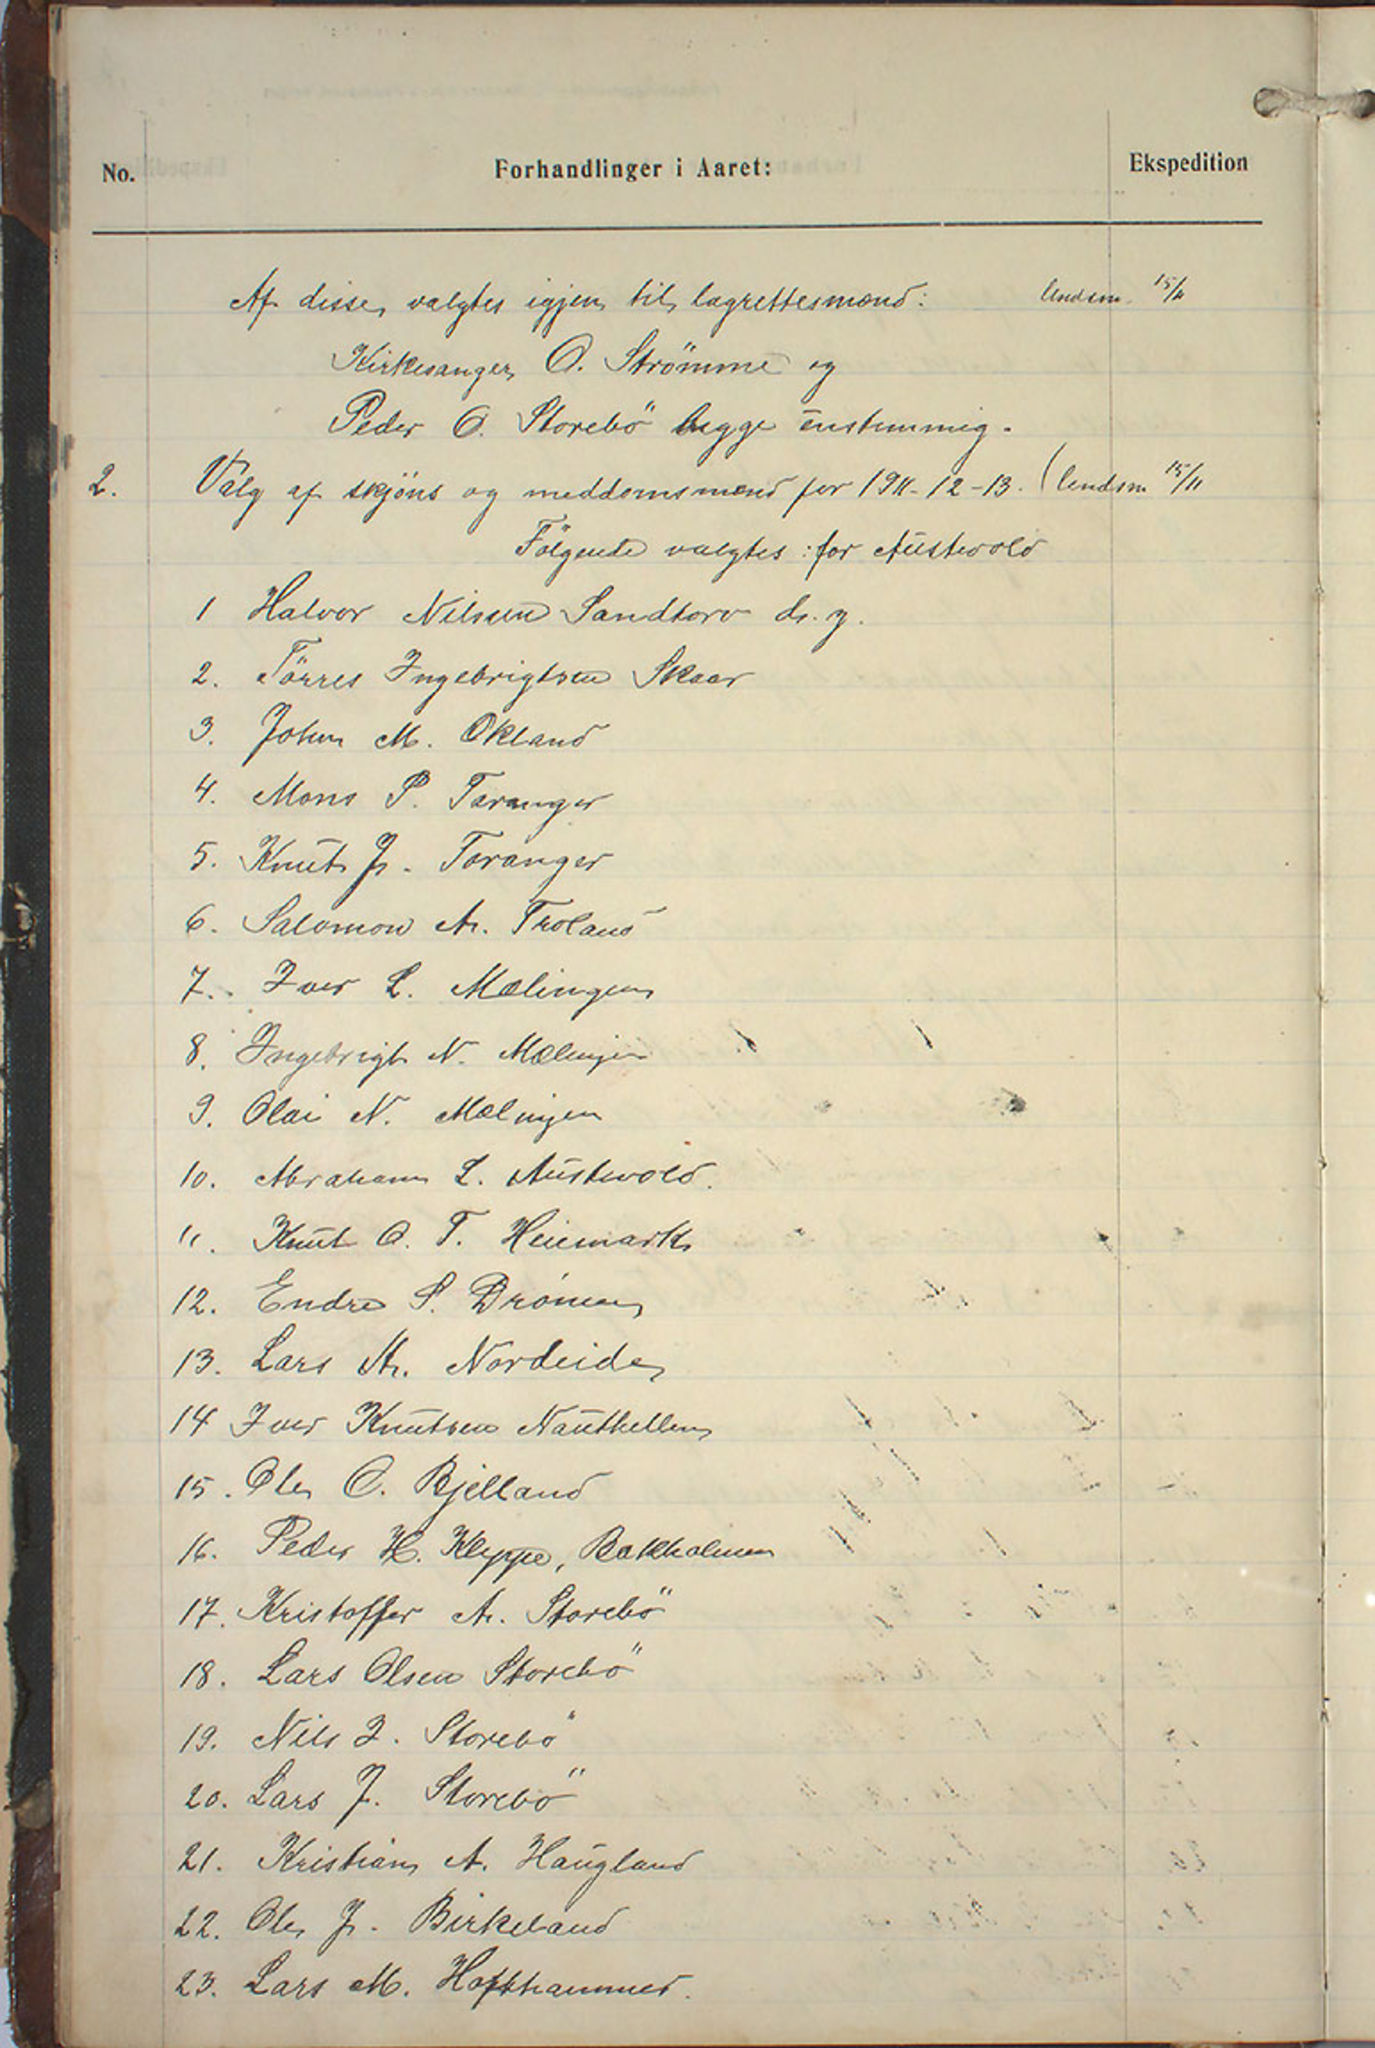 No. Forhandlinger i Aaret: Ekspedition
Af disse valgtes igjen til lagrettesmænd: lendsm. 15/11
Kirkesanger O. Strömme og
Peder O. Storebö begge enstemmig.
2. Valg af skjöns og meddomsmænd for 1911-12-13. (lendsm 15/11
Fölgende valgtes: for Austevold
1 Halvor Nilsen Sandtorv d. y.
2. Törres Ingebrigtsen Skaar
3. Johan M. Økland
4. Mons P. Taranger
5. Knut J. Taranger
6. Salomon A. Troland
7. Iver L. Mælingen
8. Ingebrigt N. Mælingen
9. Olai N. Mælingen
10. Abraham L. Austevold.
11. Knut O. T. Heimark
12. Endre S. Drönen
13. Lars A. Nordeide
14 Iver Knutsen Nauthellen
15. Ole O. Bjelland
16. Peder H. Kleppe, Bakholmen
17. Kristoffer A. Storebö
18. Lars Olsen Storebö
19. Nils I. Storebö
20. Lars J. Storebö
21. Kristian A. Haugland
22. Ole J. Birkeland
23. Lars M. Hofthammer.